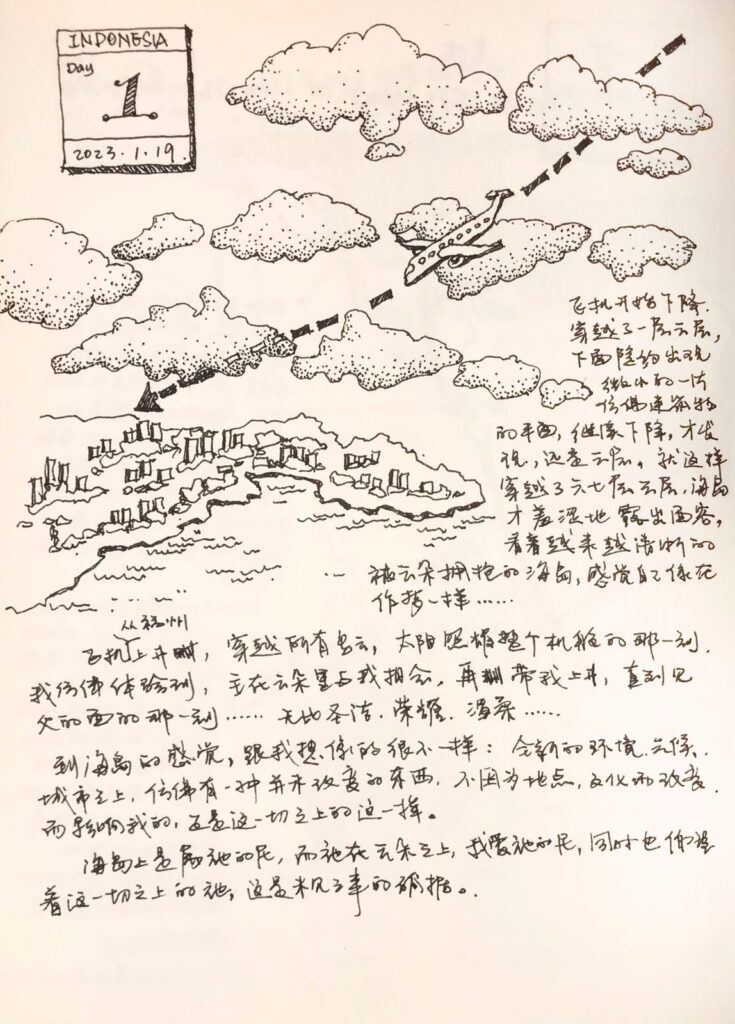 INDONESIA
Day
1
2023.1.19.
飞机开始下降.
穿越了一层云层,
下面隐约出现
微小的一片
仿佛建筑物
的平面, 继续下降, 才发
现, 还是云层。就这样
穿越了六七层云层, 海岛
才羞涩地露出面容,
看着越来越清晰的
被云朵拥抱的海岛, 感觉自己像在
作梦一样……
从福州
飞机上升时, 穿越所有乌云, 太阳照耀整个机舱的那一刻.
我仿佛体验到, 主在云朵里与我相会, 再 带我上升, 直到见
父的面的那一刻…… 无比圣洁. 荣耀. 温柔……
到海岛的感觉, 跟我想像的很不一样: 全新的环境. 气候.
城市之上, 仿佛有一种并未改变的东西. 不因为地点, 文化而改变.
而影响我的, 正是这一切之上的这一样。
海岛上是属祂的民, 而祂在云朵之上, 我爱祂的民, 同时也仰望
着这一切之上的祂, 这是未见之事的确据。